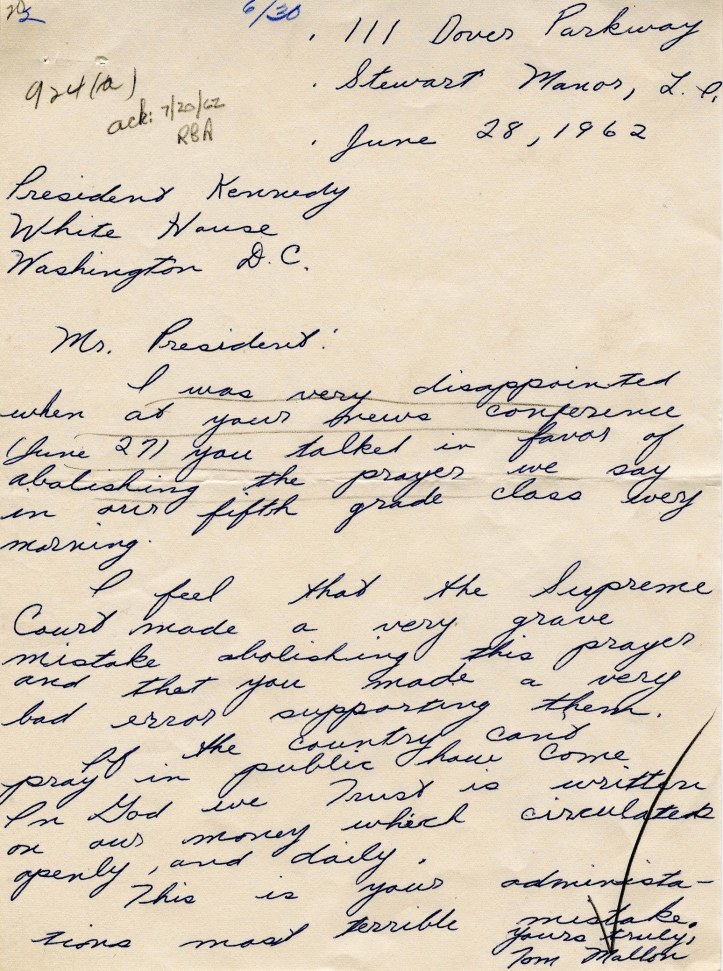 6/30
111 Dover Parkway
924(a)
Stewart Manor, L.I.
ack: 7/20/62
RBA
June 28, 1962
President Kennedy
White House
Washington D.C.
Mr. President:
I was very disappointed
when at your news conference
(June 27) you talked in favor of
abolishing the prayer we say
in our fifth grade class every
morning.
I feel that the Supreme
Court made a very grave
mistake abolishing this prayer
and that you made a very
bad error supporting them.
If the country cant
pray in public how come
In God we Trust is written
on our money which circulates
openly, and daily.
This is your administa-
tions most terrible mistake.
yours truly,
Tom Mallon